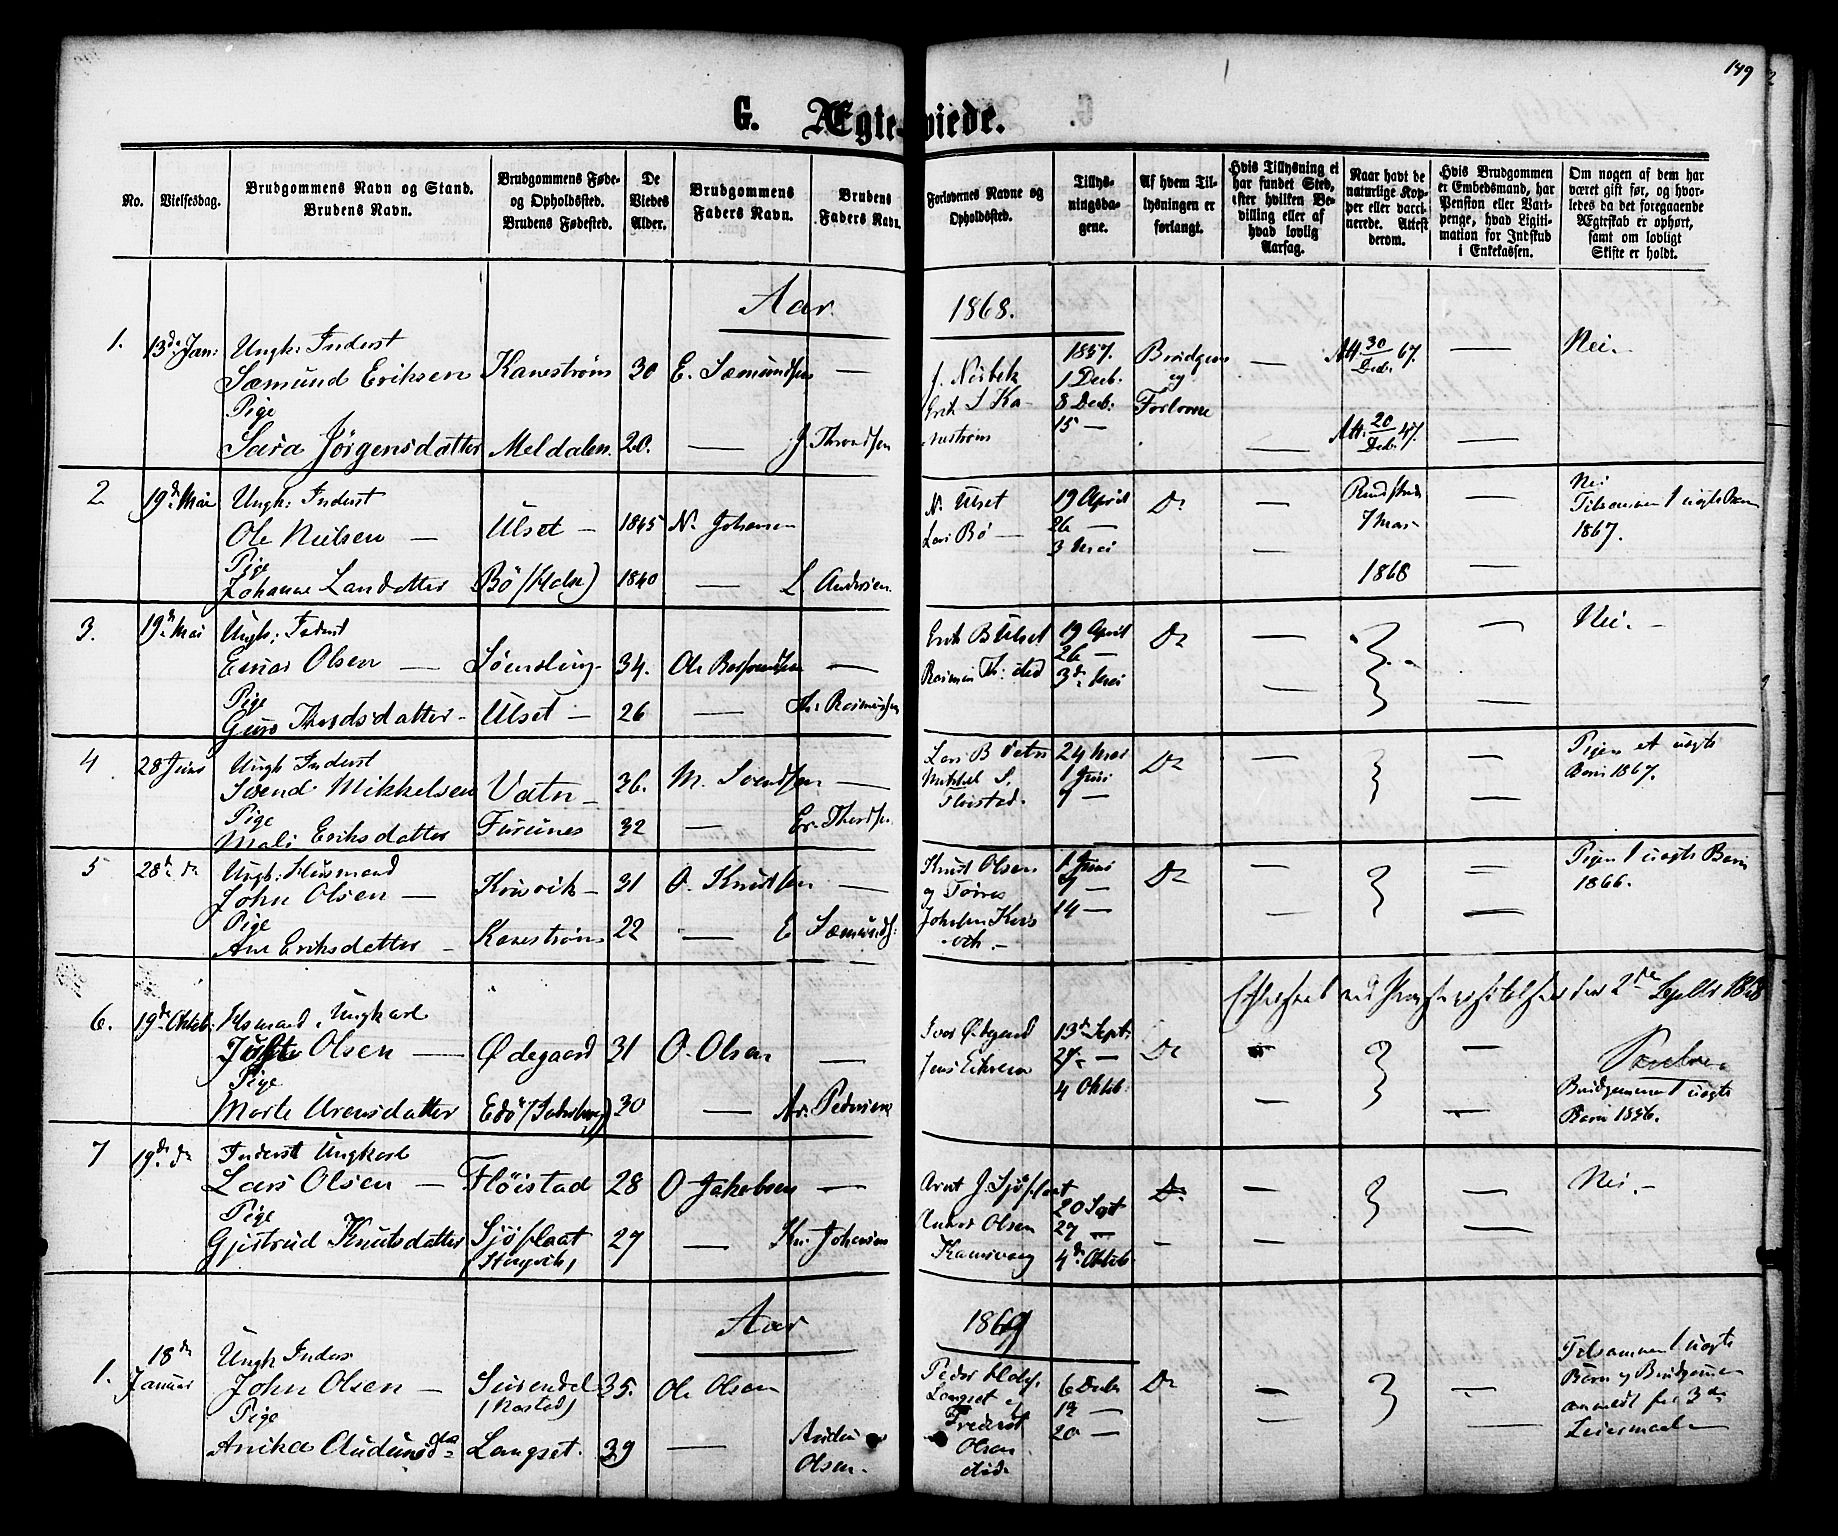 149
G. Ægteviede.
No.
Vielsesdag.
Brudgommens Navn og Stand.
Brudens Navn.
Brudgommens Føde-
og Opholdssted.
Brudens Fødested.
De
Viedes
Alder.
Brudgommens
Faders Navn.
Brudens
Faders Navn.
Forlovernes Navne og
Opholdssted.
Tillys-
ningsda-
gene.
Af hvem Til-
lysningen er
forlangt.
Hvis Tillysning ei
har fundet Sted,
efter hvilken Be-
villing eller af
hvad lovlig
Aarsag.
Naar havt de
naturlige Kop-
per eller vacci-
nerede. Attest
derom.
Hvis Brudgommen
er Embedsmand, har
Pension eller Vart-
penge, hvad Ligiti-
mation for Indskud
i Enkekassen.
Om nogen af dem har
været gift før, og hvor-
ledes da det foregaaende
Ægteskab er ophørt,
samt om lovligt
Skifte er holdt.
Aar 1868.
1. 13de Jan: Ungk: Inderst
Sæmund Eriksen Kanestrøm 30 E. Sæmundsen —
Pige
Sara Jørgensdatter Meldalen 20. — J. Throndsen
1857.
1 Decb.
8 Decb.
15 —
Brudgom
og
Forlovne
Att. 30 Decb. 67.
Att. 20 Decb. 47.
Nei.
2 19de Mai Ungk: Inderst
Ole Nielsen — Ulset — 1845 N. Johansen
Pige
Johanne Larsdatter Bö (Halse) 1840 — L Andersen
N. Ulset
Lars Bø —
19 April
26 —
3 Mai
Do
7 Mai
1868
Nei
Tilsammen 1 uægte Barn
1867.
3. 19de Mai Ungk: Inderst
Olsen — 34. Ole —
Pige
Guro Thordsdatter Ulset — 26 — Rasmussen
Erik B Ulset
19 April
26 —
3de Mai
Do
Nei. —
4 28 Juni Ungk Inderst
Svend Mikkelsen Vatn — 36. M. Svendsen —
Pige
Mali Eriksdatter Furunes 32 — Er. Thordsen
Lars B Vatn
Mikkel S.
Fløistad.
24 Mai
1 Juni
7 —
Do
Pigen et uægte
Barn 1867.
5 28de do Ungk: Husmand
John Olsen — Korsvik — 31 O. Knudsen —
Pige
Ane Eriksdatter — Kanestrøm 22 — E Sæmunds:
Knud Olsen
og Tørres
Johnsen Kors
vik. —
1 Juni
7 —
14 —
Do
Pigen 1 uægte Barn
1866.
6. 19de Oktob: Husmand, Ungkarl
Olsen — Ødegaard 31 O. Olsen —
Pige
Marte Arensdatter Edö 30 — Ar. Pedersen
Iver Ødegaard
13de Sept:
27 —
4 Oktob.
Do
Brudgommen 1 uægte
Barn 1856.
7 19de do Inderst Ungkarl
Lars Olsen — Flöistad 28 O Jakobsen —
Pige
Gjertrud Knutsdatter Sjöflaat 27 — Kn. Johnsen
(Stangvik)
Arnt J. Sjöflaat
Anders Olsen
20 Sept
27 —
4de Oktob.
Do
Nei. —
Aar 1869
1. 18de
Januar
Ungk Inders
John Olsen — Surendal 35. Ole Olsen
Pige
Anika Audunsd Langset. 39 —
Olsen.
Peder
Langset og
Frederik
Olsen
6 Decbr
13 —
20 —
Do
Tilsammen 1 uægte
Barn og Brudgommen
anmeldt for 3de
Leiermaal